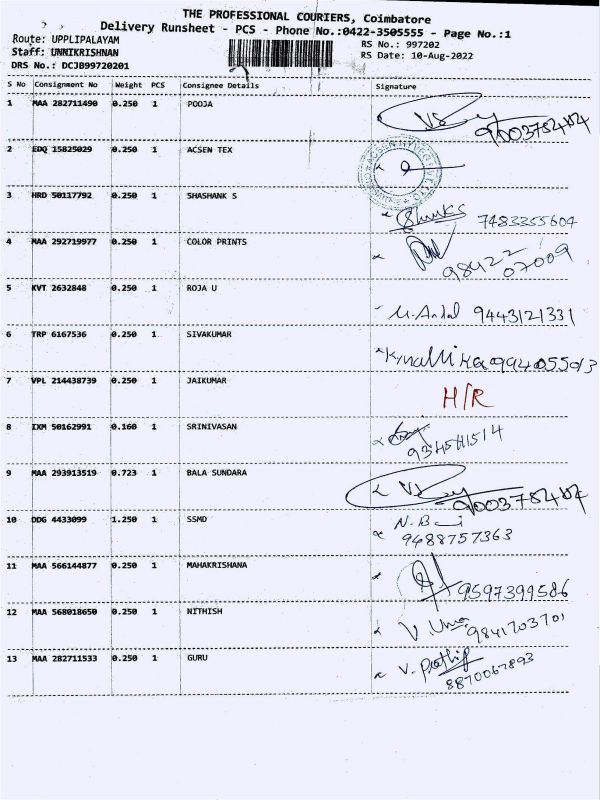 THE PROFESSIONAL COURIERS, Coimbatore
Delivery Runsheet - PCS - Phone No.:0422-3505555 - Page No.:1
Route: UPPLIPALAYAM RS No.: 997202
Staff: UNNIKRISHNAN RS Date: 10-Aug-2022
DRS No.: DCJB99720201
S No Consignment No Weight PCS Consignee Details Signature
1 MAA 282711490 0.250 1 POOJA 9003782442
2 EDQ 15825029 0.250 1 ACSEN TEX
3 HRD 50117792 0.250 1 SHASHANK S 7483255604
4 MAA 292719977 0.250 1 COLOR PRINTS 98422 07009
5 KVT 2632848 0.250 1 ROJA U 9443121331
6 TRP 6167536 0.250 1 SIVAKUMAR 994055013
7 VPL 214438739 0.250 1 JAIKUMAR H/R
8 IXM 50162991 0.160 1 SRINIVASAN
9 MAA 293913519 0.723 1 BALA SUNDARA 9003782442
10 DDG 4433099 1.250 1 SSMD 9488757363
11 MAA 566144877 0.250 1 MAHAKRISHANA 9597399586
12 MAA 568018650 0.250 1 NITHISH V. Uma 9841703701
13 MAA 282711533 0.250 1 GURU V. Prathip 8870067893